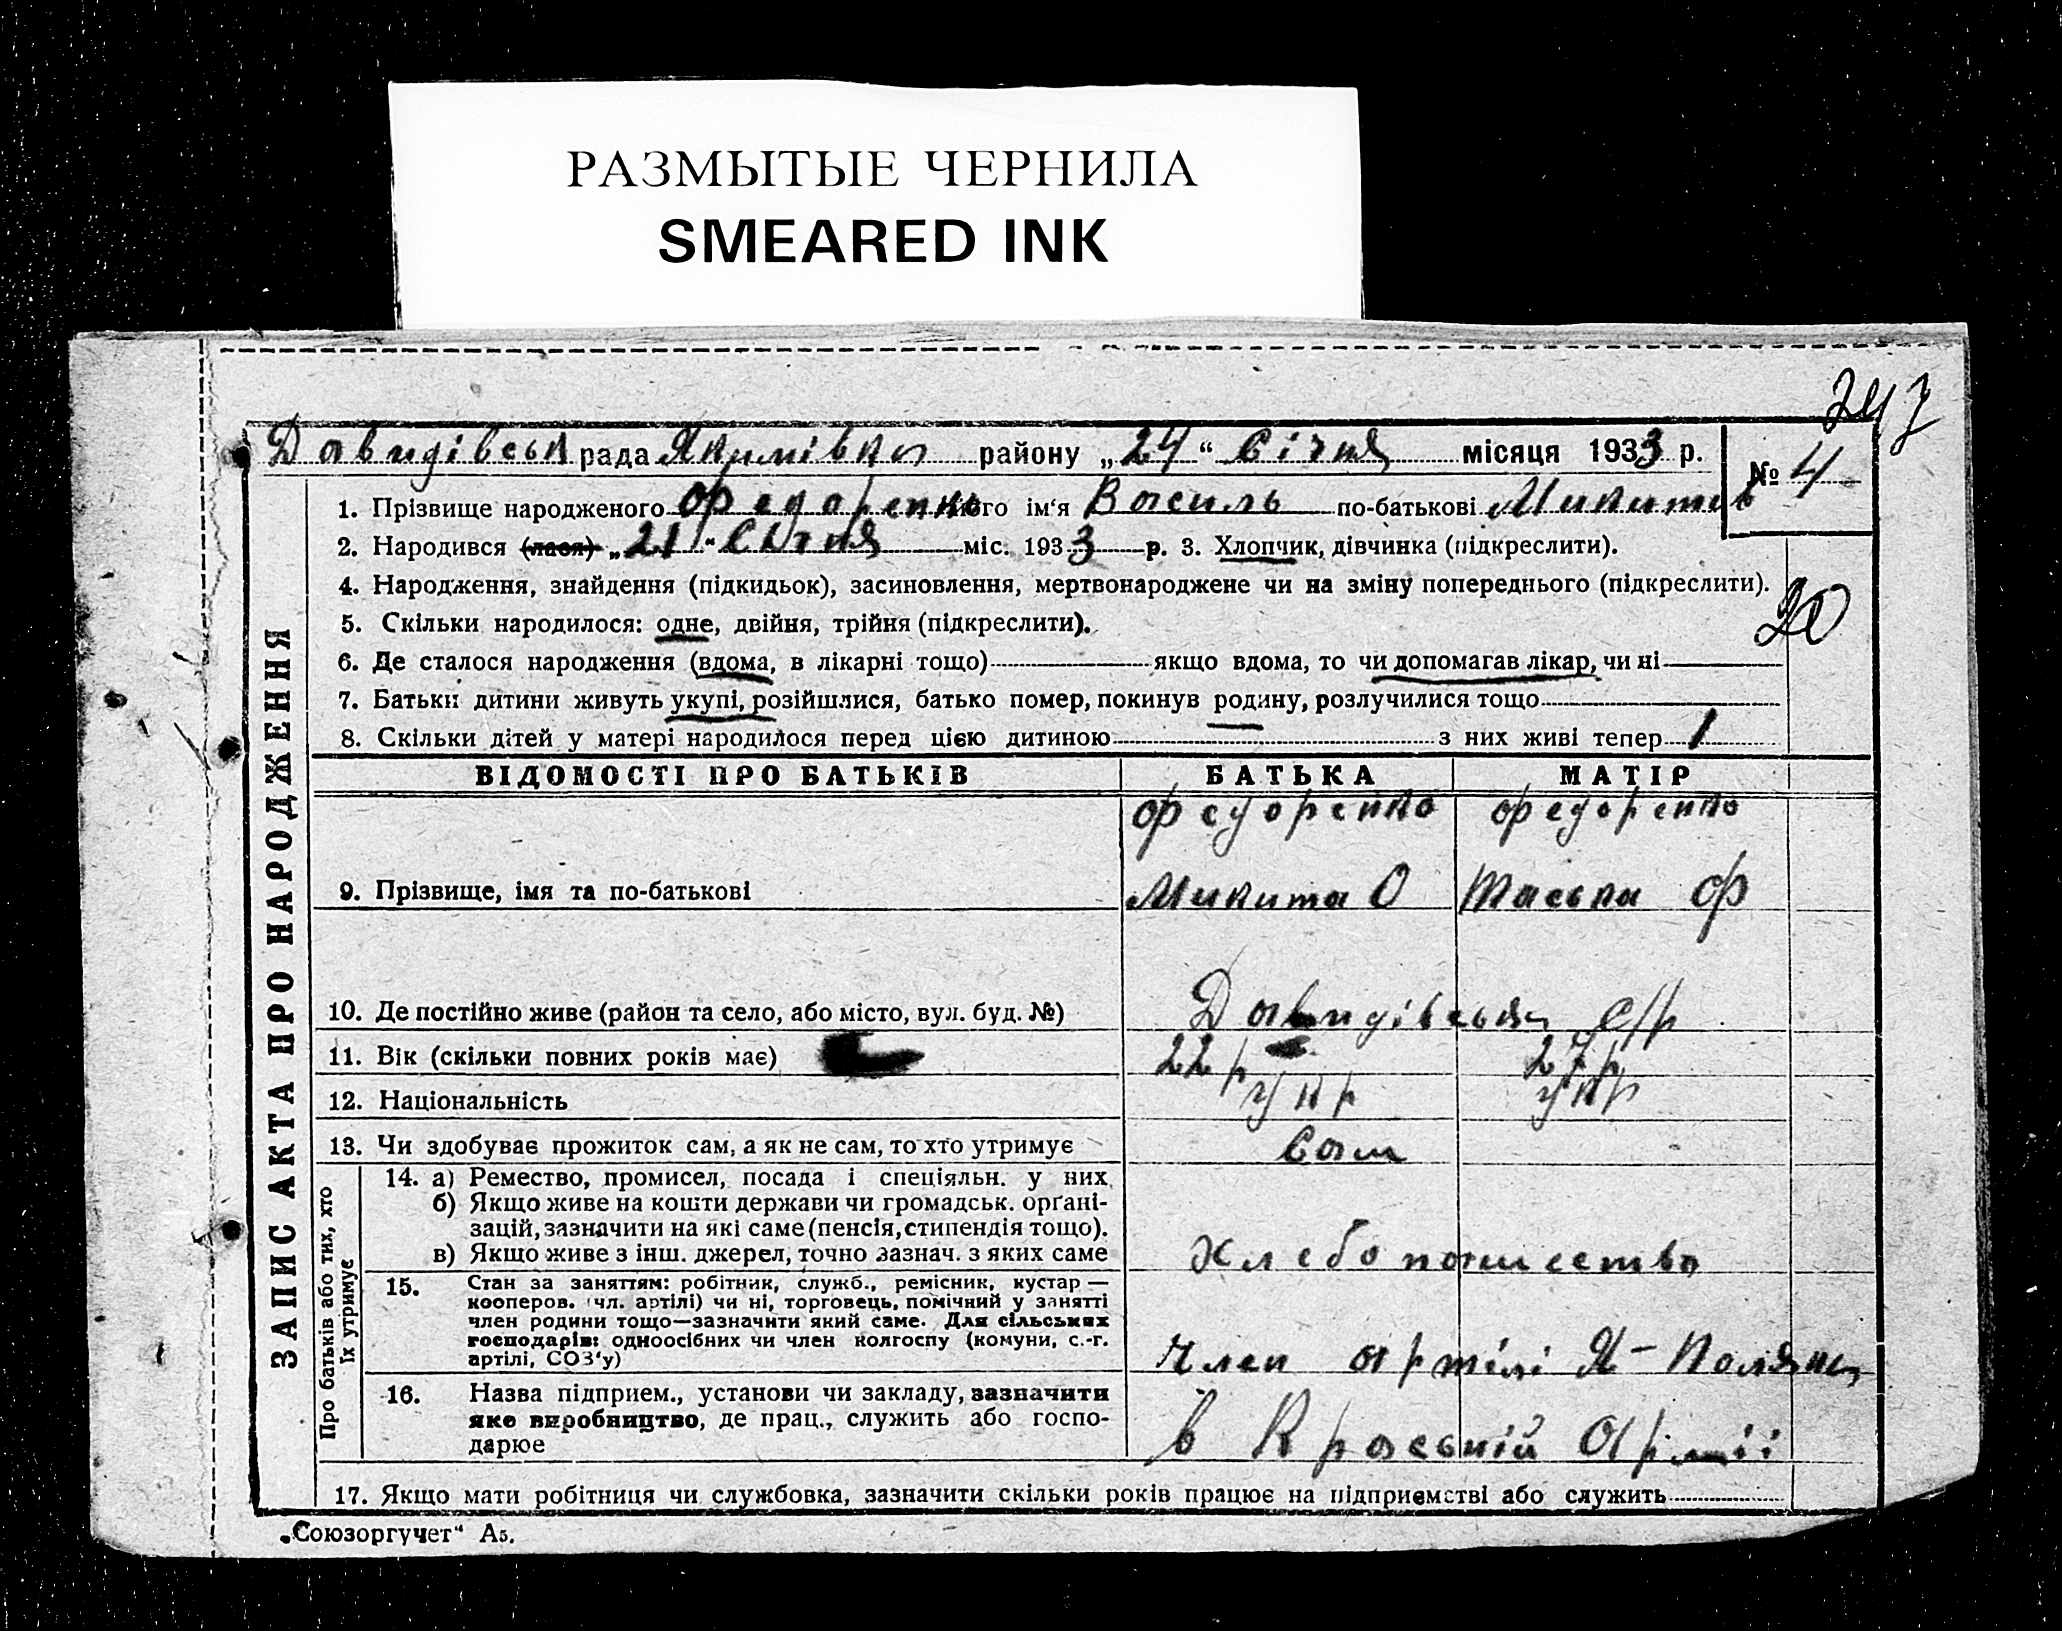 РАЗМЫТЫЕ ЧЕРНИЛА
SMEARED INK
247
Давидівська рада Якимівка району „24“ Січня місяця 1933 р. № 4
1. Прізвище народженого Федоренко його ім‘я Василь по-батькові Микитов
2. Народився (лася) „21“ Січня міс. 1933 р. 3. Хлопчик, дівчинка (підкреслити).
4. Народження, знайдення (підкидьок), засиновлення, мертвонароджене чи на зміну попереднього (підкреслити).
20
5. Скільки народилося: одне, двійня, трійня (підкреслити).
6. Де сталося народження (вдома, в лікарні тощо) якщо вдома, то чи допомагав лікар, чи ні
7. Батьки дитини живуть укупі, розійшлися, батько помер, покинув родину, розлучилися тощо
8. Скільки дітей у матері народилося перед цією дитиною — з них живі тепер 1
ЗАПИС АКТА ПРО НАРОДЖЕННЯ
ВІДОМОСТІ ПРО БАТЬКІВ БАТЬКА МАТІР
Федоренко Федоренко
9. Прізвище, імя та по-батькові Микита О Таська Ф
10. Де постійно живе (район та село, або місто, вул. буд. №) Давидівська с/р
11. Вік (скільки повних років має) 22 р 27 р
12. Національність укр укр
13. Чи здобуває прожиток сам, а як не сам, то хто утримує Сам
Про батьків або тих, хто
їх утримує
14. а) Ремество, промисел, посада і спеціяльн. у них
б) Якщо живе на кошти держави чи громадськ. орґані-
зацій, зазначити на які саме (пенсія, стипендія тощо).
в) Якщо живе з інш. джерел, точно зазнач. з яких саме Хлебопашество
15. Стан за заняттям: робітник, служб., ремісник, кустар —
кооперов. (чл. артілі) чи ні, торговець, помічний у занятті
член родини тощо—зазначити який саме. Для сільських
господарів: одноосібних чи член колгоспу (комуни, с.-г.
артілі, СОЗ‘у) Член артілі Я- Поляна
16. Назва підприєм., установи чи закладу, зазначити
яке виробництво, де прац., служить або госпо-
дарює в Краській Армії
17. Якщо мати робітниця чи службовка, зазначити скільки років працює на підприємстві або служить
„Союзоргучет“ А5.